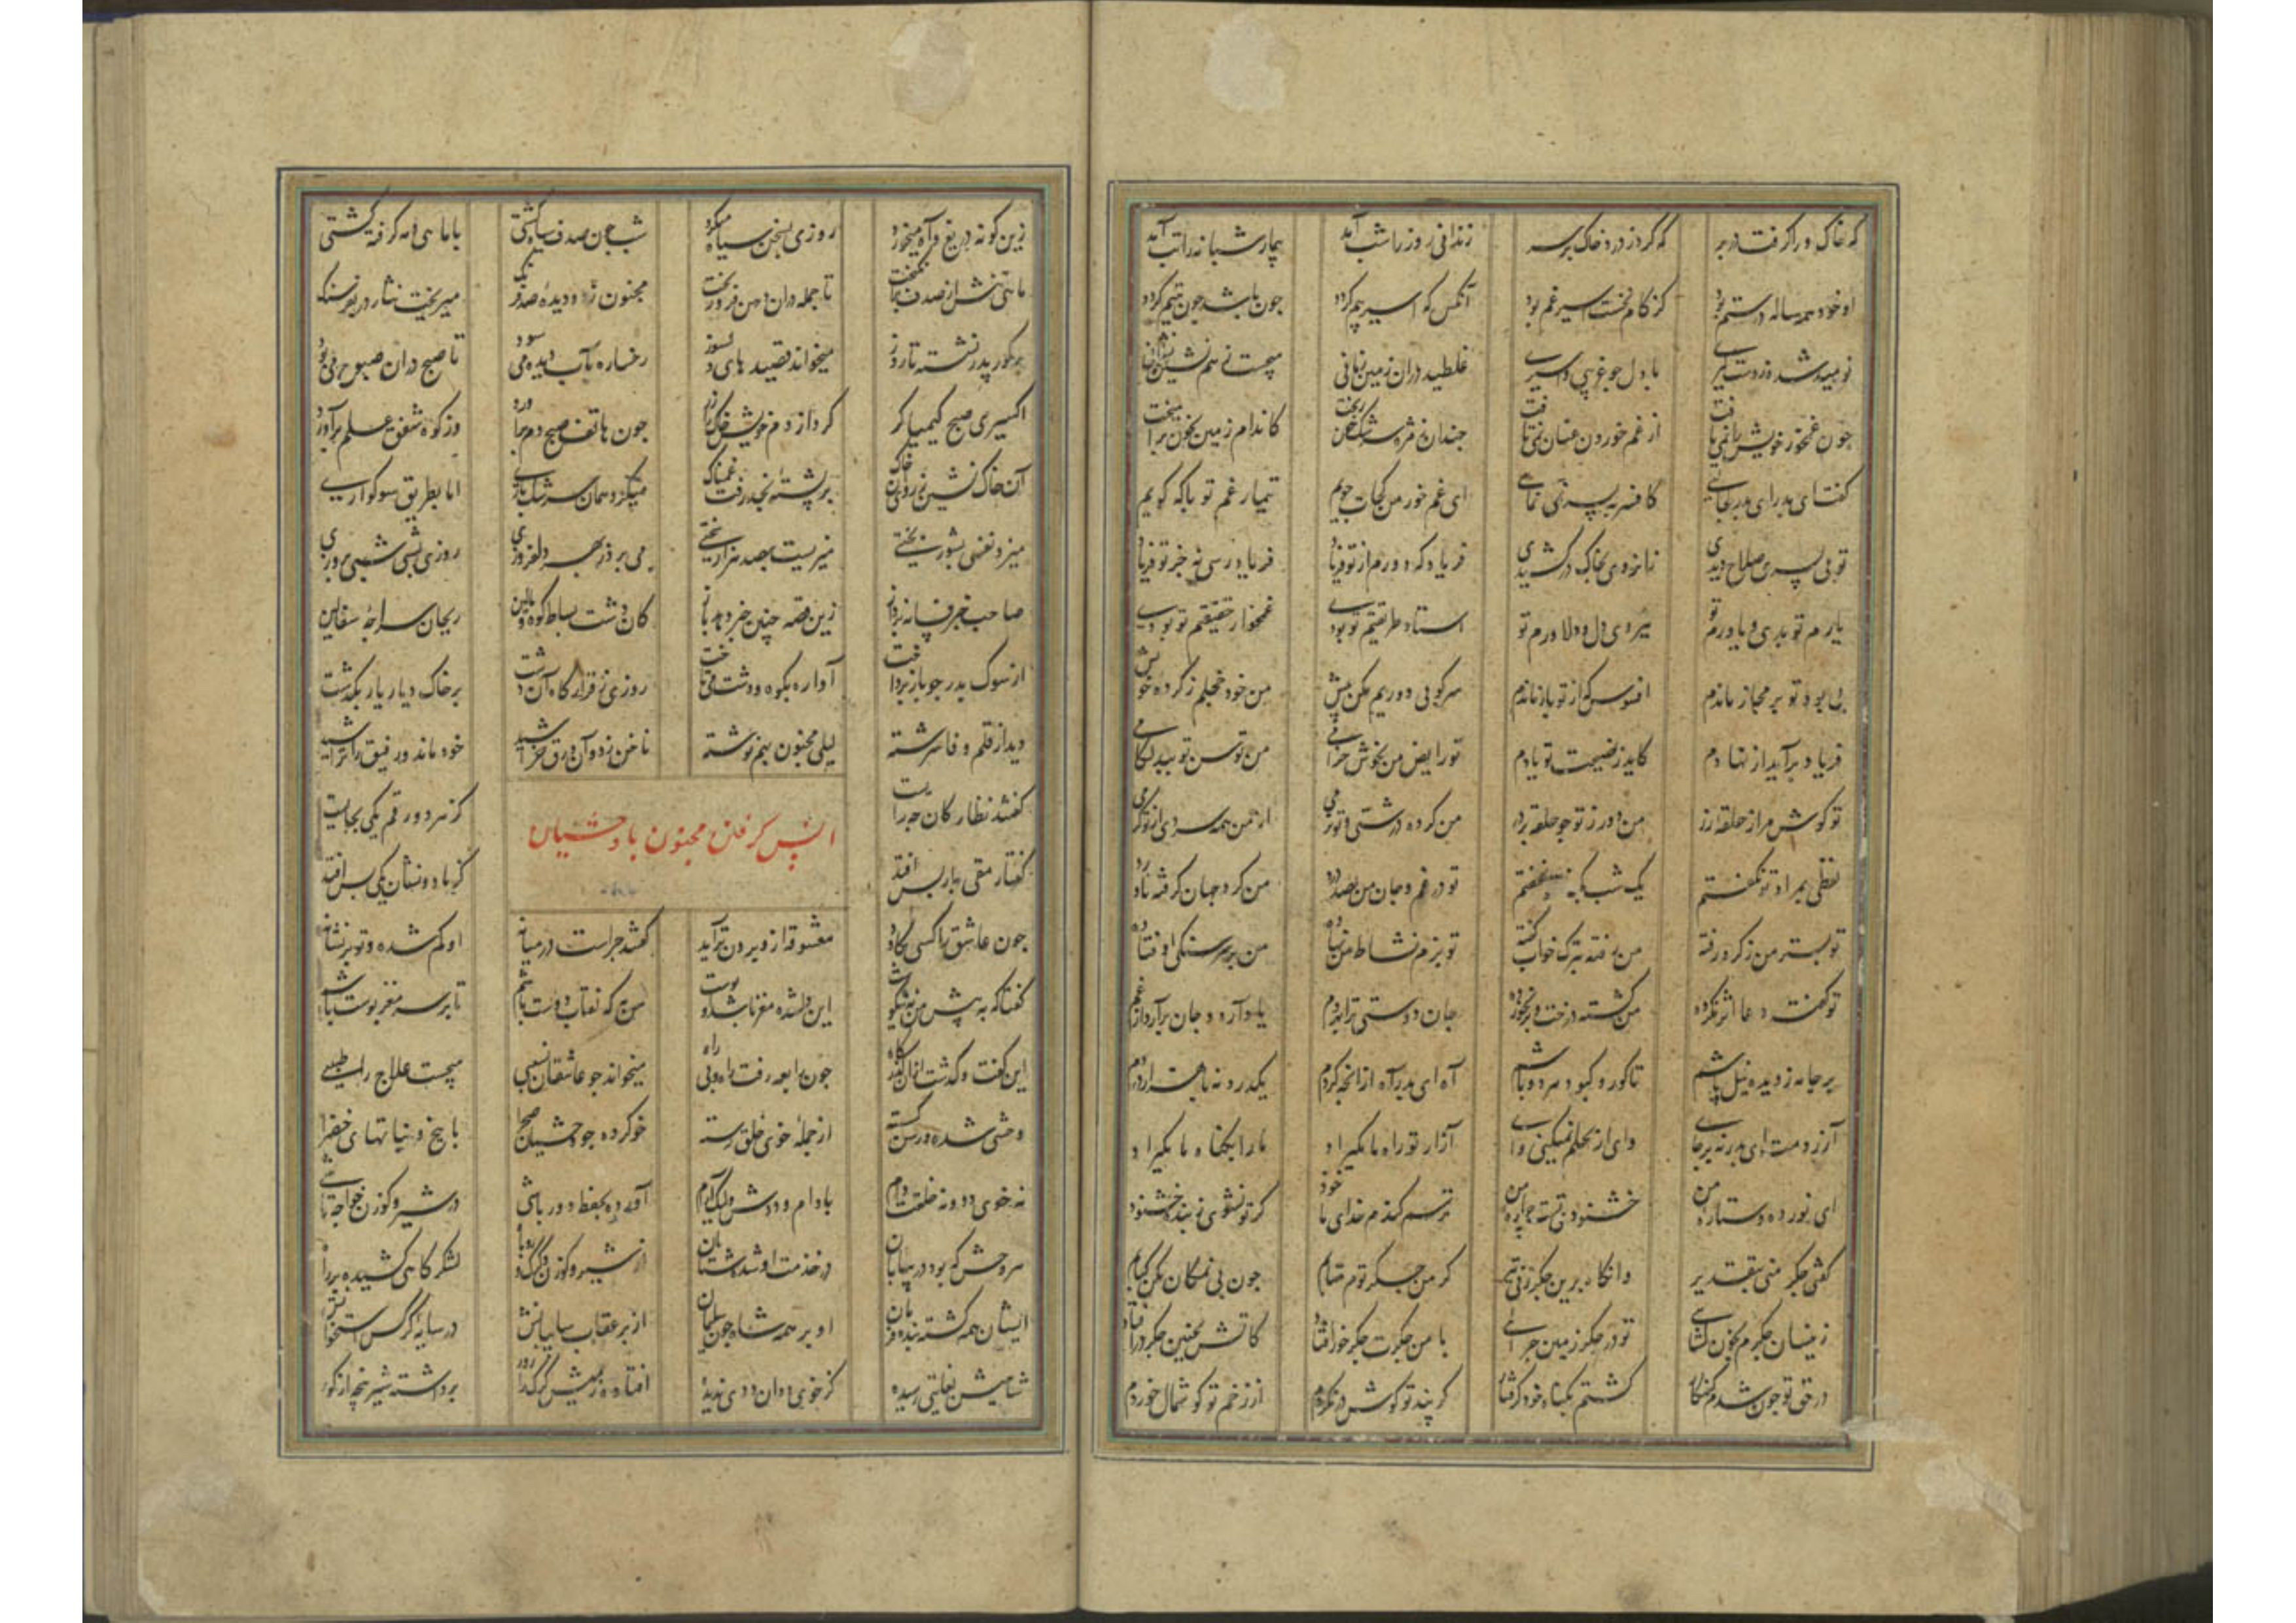 که خاک ورا گرفت در بر که کرد ز درد خاک بر سر زندانی روز را شب آمد بیمار شبانه را تب آمد
او خود همه ساله در ستم بود کز کام نخست سیر غم بود آنکس که اسیر بیم گردد چون باشد چون یتیم گردد
نومید شده ز دستگیری با دل چو غریبی و اسیری غلطید در آن زمین زمانی میجست ز هم نشین نشانی
چون غمخور خویش را نمی یافت از غم خوردن عنان نمی تافت چندان ز مژه سرشک خون ریخت کاندام زمین بخون برآمیخت
گفت ای پدر ای پدر کجائی کافسر به پسر نمی نمائی ای غم خور من کجات جویم تیمار غم تو با که گویم
تو بی پسری صلاح دیدی زان روی بخاک در کشیدی فریاد که دورم از تو فریاد فریادرسی نه جز تو فریاد
یارم تو بدی و یاورم تو نیروی دل و دلاورم تو استاد طریقتم تو بودی غمخوار حقیقتم تو بودی
بی بود تو بر مجاز ماندم افسوس که از تو باز ماندم سرکوبی دوریم مکن بیش من خود خجلم ز کرده خویش
فریاد برآید از نهادم کاید ز نصیحت تو یادم تو رایض من بخوش خرامی من توسن تو ببدلگامی
تو گوش مرا ز حلقه زر من دور ز تو چو حلقه بر در من کرده درشتی و تو نرمی از من همه سردی از تو گرمی
لفظی بمراد تو نگفتم یک شب بکنار تو نخفتم تو در غم و جان من بصد درد من گرد جهان گرفته ناورد
تو بستر من ز گرد رفته من رفته بترک خواب گفته تو بزم نشاط من نهاده من بر سر سنگی اوفتاده
تو گفته دعا اثر نکرده من کشته درخت و بر نخورده جان دوستی ترا بهر دم یاد آرم و جان برآرد از غم
بر جامه ز دیده نیل پاشم تا کور و کبود هر دو باشم آه ای پدر آه از آنچه کردم یکدرد نه با هزار دردم
آزردمت ای پدر نه بر جای وای ار بحلم نمیکنی وای آزار تو راه ما مگیراد ما را بگناه ما مگیراد
ای نور ده ستاره من خشنودی تست چاره من ترسم کندم خدای ماخوذ گر تو نشوی ز بنده خشنود
گفتی جگر منی بتقدیر وانگاه برین جگر زنی تیر گر من جگر توام منابم چون بی نمکان مکن کبابم
زینسان جگرم بخون گشائی تو در جگر زمین چرائی با من جگرت جگر خور افتاد کآتش بچنین جگر در افتاد
در حق تو چون شدم گنه کار گشتم بگناه خود گرفتار گر پند تو گوش در نکردم از زخم تو گوشمال خوردم
زین گونه دریغ و آه میخورد روزی بسخن سیاه میکرد شب چون صدف سیاه گشتی با ماهی مه گرفته کشتی
تا جمله در آن دمن فرو ریخت مجنون ز دو دیده صدف رنگ میریخت نثار در بفرسنگ
بر گور پدر نشسته تا روز میخواند قصیده های دلسوز رخساره بآب دیده می سود تا صبح در آن صبوح می بود
اکسیری صبح کیمیاگر کرد از دم خویش خاک را زر چون هاتف صبح دم برآورد وز کوه شفق علم برآورد
آن خاک نشین ز روی آن خاک بر پشته نجد رفت غمناک میکرد همان سرشک باری اما بطریق سوکواری
میزد نفسی بشور بختی میزیست بصد هزار سختی می برد ز بهر دلفروزی روزی بشبی شبی بروزی
صاحب خبر فسانه پرداز زین قصه چنین خبر دهد باز کان دشت بساط کوه بالین ریحان سراچه سفالین
از سوک پدر چو باز پرداخت آواره بکوه و دشت می تاخت روزی ز قرارگاه آن دشت بر خاک دیار یار بگذشت
دید از قلم وفا سرشته لیلی مجنون بهم نوشته ناخن زد و آن ورق خراشید خود ماند و رفیق را تراشید
گفتند نظارگان چه رایست کز هر دو رقم یکی بجایست
انس گرفتن مجنون با وحشیان
گفتار مقی بار بس افتد کز ما دو نشان یکی بس افتد
چون عاشق را کسی بکاود معشوقه ازو برون تراود گفتند چراست در میانه او گم شده و تو بر نشانه
گفتا که به پیش من نه نیکوست این دلشده مغز باشد و پوست من به که نقاب دوست باشم تا بر سر مغز پوست باشم
این گفت و گذشت از آن گذرگاه چون رابعه رفت راه و بی راه میخواند چو عاشقان نسیبی میجست علاج را طبیبی
وحشی شده و رسن گسسته از جمله خوی خلق رسته خو کرده چو وحشیان صحرا با بیخ و نباتهای خضرا
نه خوی دد و نه خلقت دام با دام و ددش ولیک آرام آورده بحفظ دور باشی در شیر و گوزن خواجه تاشی
هر وحش که بود در بیابان در خدمت او شده شتابان از شیر و گوزن و گرگ و روباه لشکرگاهی کشیده بر راه
ایشان همه گشته بنده فرمان او بر همه شاه چون سلیمان از پر عقاب سایبانش در سایه کرکس استخوانش
شاهیش بغایتی رسیده کز خوی ددان ددی بریده افتاده ز میش گرگ را زور برداشته شیر پنجه از گور